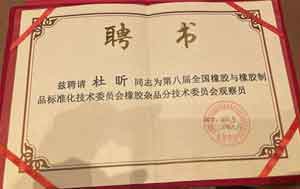 聘 书
兹聘请 杜 昕 同志为第八届全国橡胶与橡胶制
品标准化技术委员会橡胶杂品分技术委员会观察员